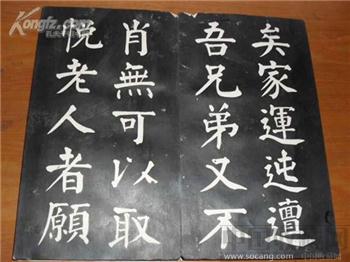 矣家運迍邅
吾兄弟又不
肖無可以取
悅老人者願
Kongfz.com
www.socang.com